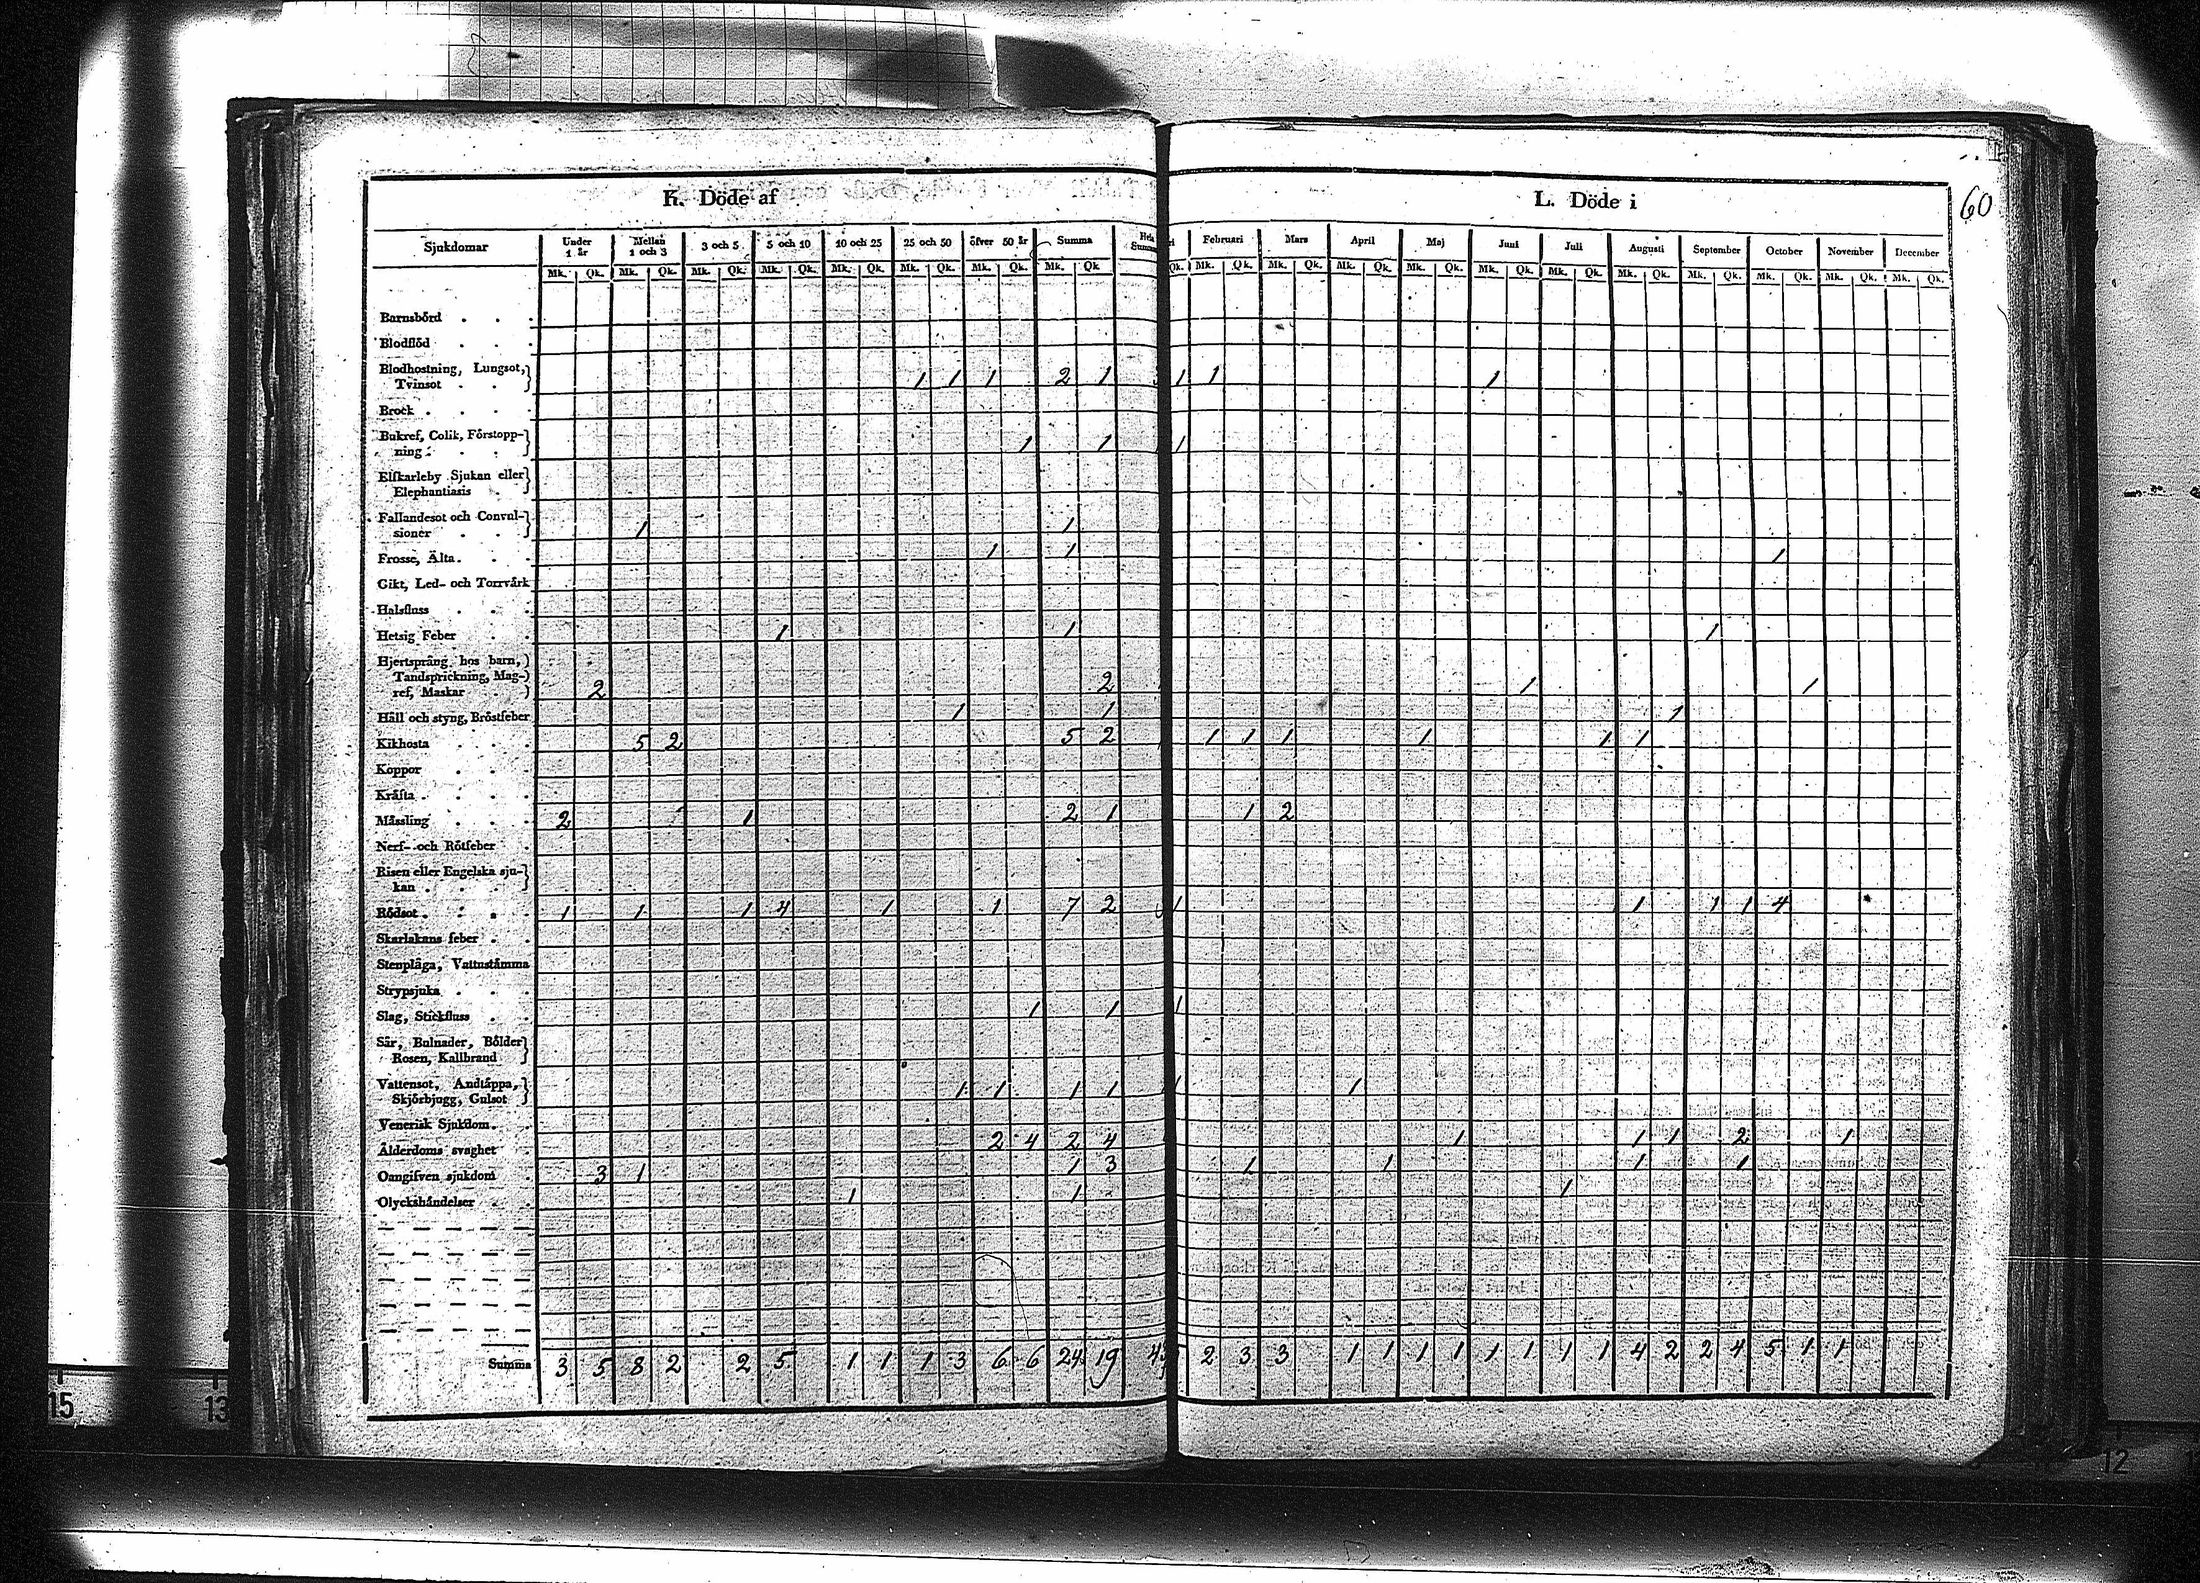 K. Döde af
L. Döde i
60
Sjukdomar Under 1 år Mellan 1 och 3 3 och 5 5 och 10 10 och 25 25 och 50 öfver 50 år Summa Februari Mars April Maj Juni Juli Augusti September October November December
Mk. Qk. Mk. Qk. Mk. Qk. Mk. Qk. Mk. Qk. Mk. Qk. Mk. Qk. Mk. Qk Qk. Mk. Qk. Mk. Qk. Mk. Qk. Mk. Qk. Mk. Qk. Mk. Qk. Mk. Qk. Mk. Qk. Mk. Qk. Mk. Qk. Mk. Qk.
Barnsbörd
Blodflöd
Blodhostning, Lungsot,
Tvinsot 1 1 1 2 1 1 1 1
Brock
Bukref, Colik, Förstopp-
ning 1 1 1
Elfkarleby Sjukan eller
Elephantiasis
Fallandesot och Convul-
sioner 1 1
Frosse, Älta 1 1 1
Gikt, Led- och Torrvärk
Halsfluss
Hetsig Feber 1 1 1
Hjertsprång hos barn,
Tandsprickning, Mag-
ref, Maskar 2 2 1 1
Håll och styng, Bröstfeber 1 1 1
Kikhosta 5 2 5 2 1 1 1 1 1 1
Koppor
Kräfta
Mässling 2 1 2 1 1 2
Nerf- och Rötfeber
Risen eller Engelska sju-
kan
Rödsot 1 1 1 4 1 1 7 2 1 1 1 1 4
Skarlakans feber
Stenplåga, Vattustämma
Strypsjuka
Slag, Stickfluss 1 1 1
Sår, Bulnader, Bölder
Rosen, Kallbrand
Vattensot, Andtäppa,
Skjörbjugg, Gulsot 1 1 1 1 1 1
Venerisk Sjukdom
Ålderdoms svaghet 2 4 2 4 1 1 1 2 1
Oangifven sjukdom 3 1 1 3 1 1 1 1
Olyckshändelser 1 1 1
Summa 3 5 8 2 2 5 1 1 1 3 6 6 24 19 2 3 3 1 1 1 1 1 1 1 1 4 2 2 4 5 1 1
15
13
12